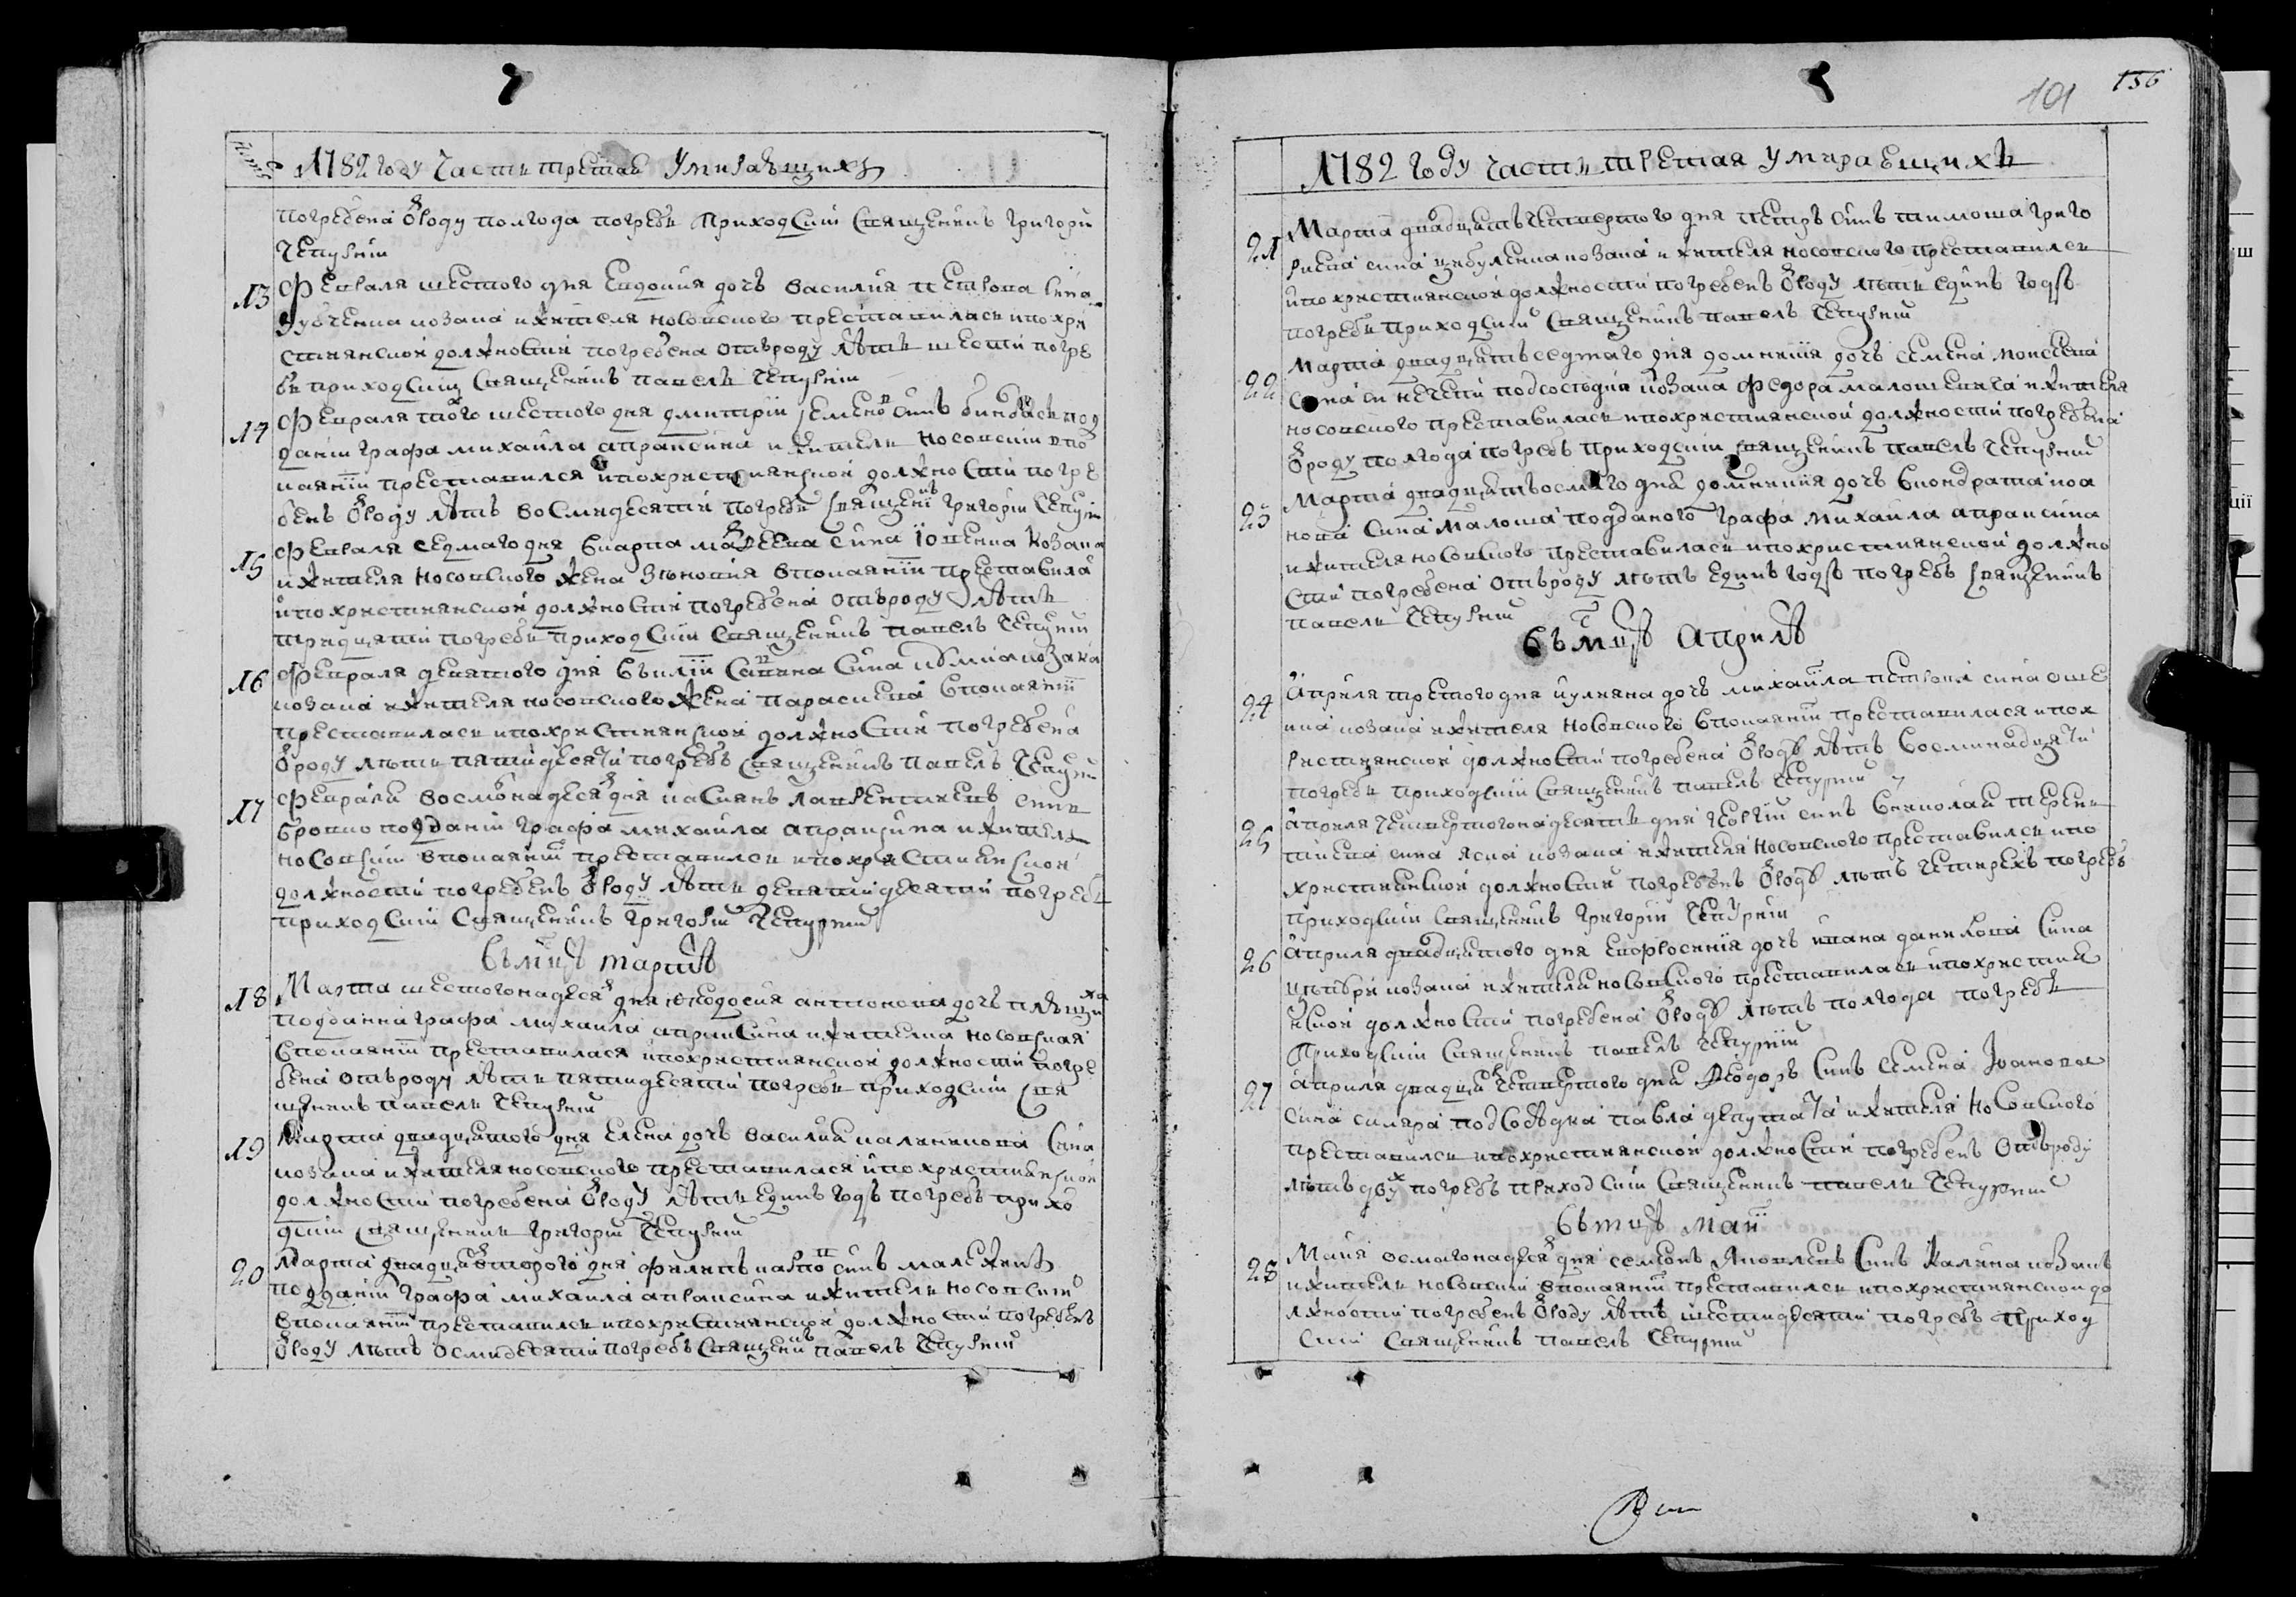 1782 году Часть третая Умирающихъ
погребена ѿ роду полгода погребъ Приходский Священникъ Григорий
Чепурний
13 Февраля шестого дня Евдокия дочь Василия Петрова сина
козака и жителя носовского преставилась и по хри
стиянской должности погребена отъ роду лѣтъ шести погре
бъ приходский Священникъ Павелъ Чепурний
14 Февраля того шестого дня Дмитрий Семеновъ синъ под
даний графа Михаила Апраксина и житель носовский в по
каянии преставился и по християнской должности погре
бенъ ѿ роду лѣтъ восмидесяти погребъ Священникъ Григорий Чепурний
15 Февраля седмого дня Матвеева сина Ющенка козака
и жителя носовского жена Зѣновия в покаянии преставилась
и по християнской должности погребена отъ роду лѣтъ
тридцяти погребъ приходский Священникъ Павелъ Чепурний
16 Февраля девятого дня сина
козака и жителя носовского жена Параскева в покаянии
преставилась и по християнской должности погребена
ѿ роду лѣтъ пятидесяти погребъ Священникъ Павелъ Чепурний
17 Февраля восмонадесят дня Касиянъ Лаврентиевъ синъ
Бровко подданий графа Михаила Апраксина и житель
носовский в покаянии преставился и по християнской
должности погребенъ ѿ роду лѣтъ девятидесяти погребъ
приходский Священникъ Григорий Чепурний
Въ мцѣ Мартѣ
18 Марта шестогонадесят дня Феодосия Антонова дочь
подданна графа Михаила Апраксина и жителка носовская
в покаянии преставилася и по християнской должности погре
бена отъ роду лѣтъ пятидесяти погребъ приходский Свя
щенникъ Павелъ Чепурний
19 Марта двадцатого дня Елена дочь Василия сина
козака и жителя носовского преставилася и по християнской
должности погребена ѿ роду лѣтъ единъ годъ погребъ прихо
дский Священникъ Григорий Чепурний
20 Марта двадцать второго дня Филипъ синъ
подданий графа Михаила Апраксина и житель носовский
в покаянии преставился и по християнской должности погребенъ
ѿ роду лѣтъ осмидесяти погребъ Священникъ Павелъ Чепурний
101 156
1782 году часть третая умирающихъ
21 Марта двадцать четвертого дня Петръ синъ Тимоша Григо
риева сина козака и жителя носовского преставился
и по християнской должности погребенъ ѿ роду лѣтъ единъ годъ
погребъ приходский Священникъ Павелъ Чепурний
22 Марта двадцать седмаго дня Домникия дочь Семена Моисеева
сина подсосѣдка козака Федора и жителя
носовского преставилась и по християнской должности погребена
ѿ роду полгода погребъ приходский священникъ Павелъ Чепурний
23 Марта двадцать осмого дня Домникия дочь Кондрата
сина Малоша подданого графа Михаила Апраксина
и жителя носовского преставилась и по християнской должно
сти погребена отъ роду лѣтъ единъ годъ погребъ священникъ
Павелъ Чепурний
Въ мцѣ Априлѣ
24 Априля третого дня Иулияна дочь Михаила Петрова сина
козака и жителя носовского в покаянии преставилася и по х
ристиянской должности погребена ѿ роду лѣтъ восминадцяти
погребъ приходский Священникъ Павелъ Чепурний
25 Априля четвертогонадесять дня Георгий синъ Николая Терен
тиева сина козака и жителя носовского преставился и по
християнской должности погребенъ ѿ роду лѣтъ четирехъ погребъ
приходский Священникъ Григорий Чепурний
26 Априля двадцатого дня Евфросиния дочь Ивана Данилова сина
козака и жителя носовского преставилась и по християн
нской должности погребена ѿ роду лѣтъ полгода погребъ
Приходский Священникъ Павелъ Чепурний
27 Априля двадцать четвертого дня Феодоръ синъ Семена Иоанова
сина подсосѣдка Павла и жителя носовского
преставился и по християнской должности погребенъ отъ роду
лѣтъ двух погребъ приходский Священникъ Павелъ Чепурний
Въ мцѣ Маи
28 Майя осмогонадесят дня Семионъ Яковлевъ синъ Калина козакъ
и житель носовский в покаянии преставился и по християнской до
лжности погребенъ ѿ роду лѣтъ шестидесяти погребъ приход
ский Священникъ Павелъ Чепурний